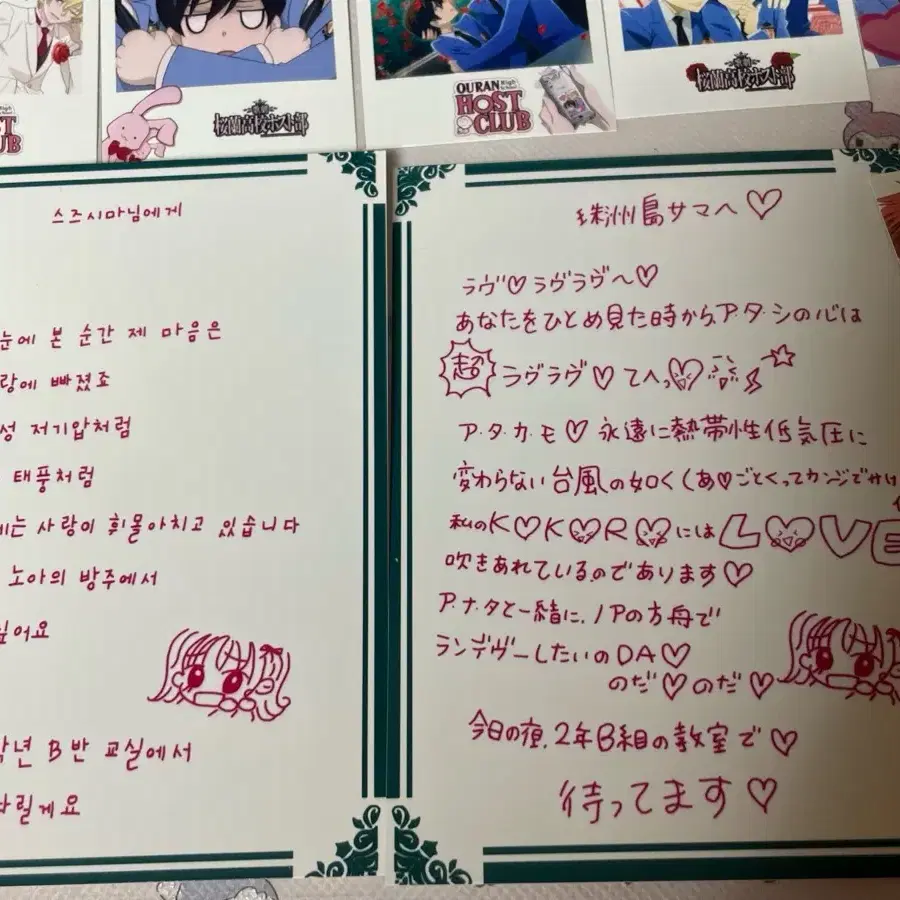 CLUB
桜蘭高校ホスト部
OURAN High School
HOST
CLUB
桜蘭高校ホスト部
스즈시마님에게
눈에 본 순간 제 마음은
빠졌죠
저기압처럼
태풍처럼
사랑이 휘몰아치고 있습니다
노아의 방주에서
싶어요
B반 교실에서
릴게요
珠洲島サマへ♡
ラヴ♡ラヴラヴ〜♡
あなたをひとめ見た時から、ア・タ・シの心は
超ラヴラヴ♡てへっ
ア・タ・カ・モ♡永遠に熱帯性低気圧に
変わらない台風の如く(あ♡ごとくってカンジでサ
私のK♡K♡R♡にはL♡VE
吹きあれているのであります♡
ア・ナ・タと一緒に、ノアの方舟で
ランデヴーしたいのDA♡
のだ♡のだ♡
今日の夜、2年B組の教室で♡
待ってます♡